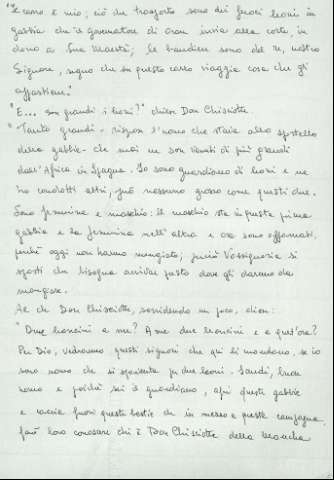 "Il carro è mio; ciò che trasporto sono dei feroci leoni in
gabbia che il governatore di Oran invia alla corte, in
dono a Sua Maestà; le bandiere sono del re, nostro
Signore, segno che su questo carro viaggia cosa che gli
appartiene."
"E... son grandi i leoni?" chiese Don Chisciotte.
"Tanto grandi - rispose l'uomo che stava allo sportello
della gabbia - che mai ne son venuti di più grandi
dall'Africa in Spagna. Io sono guardiano di leoni e ne
ho condotti altri, ma nessuno grosso come questi due.
Sono femmina e maschio: il maschio sta in questa prima
gabbia e la femmina nell'altra e ora sono affamati,
perché oggi non hanno mangiato, perciò Vossignoria si
sposti che bisogna arrivar presto dove gli daremo da
mangiare.
Al che Don Chisciotte, sorridendo un poco, disse:
"Due leoncini a me? A me due leoncini e a quest'ora?
Per Dio, vedranno questi signori che qui li mandano, se io
sono uomo che si spaventa per due leoni. Scendi, buon
uomo e poiché sei il guardiano, apri queste gabbie
e caccia fuori queste bestie che in mezzo a queste campagne
farò loro conoscere chi è Don Chisciotte della Mancha